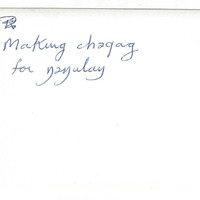 Making chəgag
for nənulay